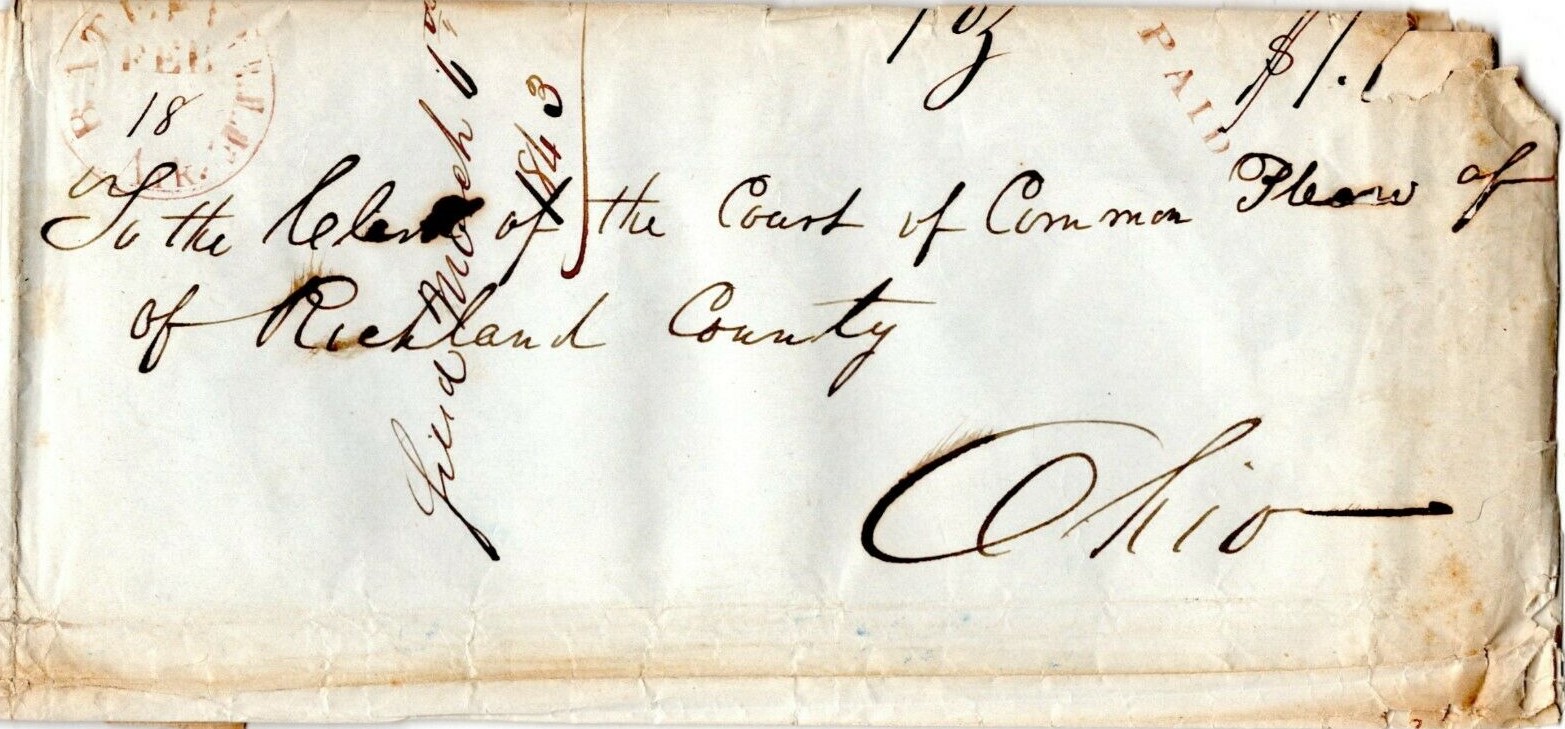 FEB
18
Ark.
1 oz
PAID
$1.
To the Clerk of the Court of Common Pleas of
of Richland County
Ohio
filed March 6th
1843